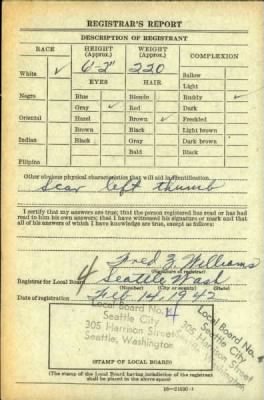 REGISTRAR'S REPORT
DESCRIPTION OF REGISTRANT
RACE HEIGHT (Approx.) WEIGHT (Approx.) COMPLEXION
White ✓ 6'-2" 220 Sallow
EYES HAIR Light
Negro Blue Blonde Ruddy ✓
Gray ✓ Red Dark
Oriental Hazel Brown ✓ Freckled
Brown Black Light brown
Indian Black Gray Dark brown
Bald Black
Filipino
Other obvious physical characteristics that will aid in identification
Scar left thumb
I certify that my answers are true; that the person registered has read or has had
read to him his own answers; that I have witnessed his signature or mark and that
all of his answers of which I have knowledge are true, except as follows:
Fred Z. Williams
(Signature of registrar)
Registrar for Local Board 4 Seattle Wash
(Number) (City or county) (State)
Date of registration Feb 14, 1942
Local Board No. 4
Seattle City
305 Harrison Street
Seattle, Washington
Local Board No. 4
Seattle City
305 Harrison Street
Seattle, Washington
(STAMP OF LOCAL BOARD)
(The stamp of the Local Board having jurisdiction of the registrant
shall be placed in the above space)
16-21630-1